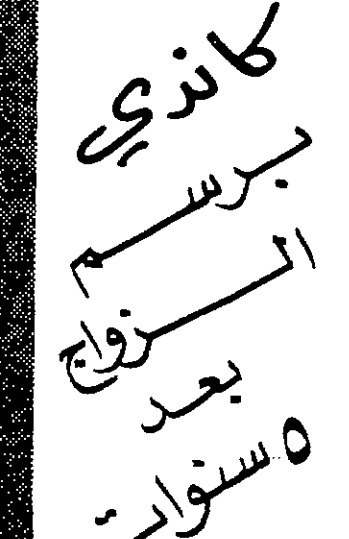 كاندي
برسم
الزواج
بعد
٥ سنوات